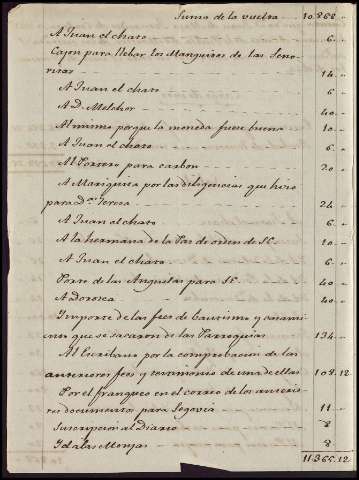 Suma de la vuelta 10.868 ..
A Juan el chato 6 ..
Cajon para llebar los Manguitos de las Seño-
ritas 14 ..
A Juan el chato 6 ..
A D. Melchor 40 ..
Al mismo porque la moneda fuese buena 10 ..
A Juan el chato 6 ..
Al Portero para carbon 20 ..
A Mariquita por las diligencias que hizo
para D.ª Teresa 24 ..
A Juan el chato 6 ..
A la hermana de la Paz de orden de SE. 20 ..
A Juan el chato 6 ..
Porte de las Anguilas para SE. 40 ..
A Dorotea 40 ..
Importe de las fees de bautismo y casami-
ento que se sacaron de las Parroquias 134 ..
Al Escribano por la comprobacion de las
anteriores fees y testimonio de una de ellas 108.12
Por el franqueo en el correo de los anterio-
res documentos para Segovia 11 ..
Suscripcion al Diario 8
Id a las Monjas 8
11.365.12